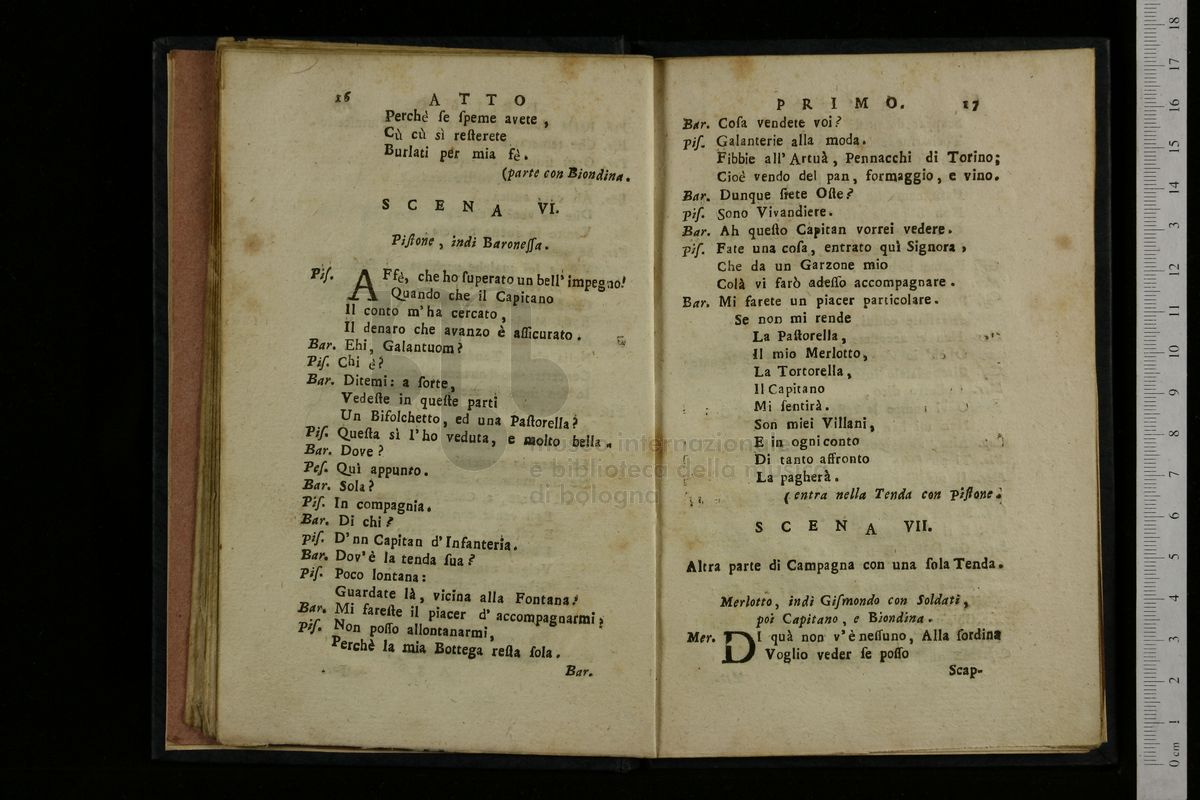 16 ATTO
Perchè ſe ſpeme avete ,
Cù cù sì reſterete
Burlati per mia fè .
(parte con Biondina.
SCENA VI.
Piſtone , indi Baroneſſa .
Piſ. AFfè, che ho ſuperato un bell' impegno!
Quando che il Capitano
Il conto m'ha cercato ,
Il denaro che avanzo è aſſicurato .
Bar. Ehi, Galantuom ?
Piſ. Chi è ?
Bar. Ditemi : a ſorte,
Vedeſte in queſte parti
Un Bifolchetto, ed una Paſtorella ?
Piſ. Queſta sì l'ho veduta, e molto bella .
Bar. Dove ?
Peſ. Quì appunto .
Bar. Sola ?
Piſ. In compagnia.
Bar. Di chi ?
piſ. D'nn Capitan d'Infanteria.
Bar. Dov'è la tenda ſua ?
Piſ. Poco lontana :
Guardate là , vicina alla Fontana !
Bar. Mi fareſte il piacer d' accompagnarmi ?
piſ. Non poſſo allontanarmi,
Perchè la mia Bottega reſta ſola .
Bar.
PRIMO. 17
Bar. Coſa vendete voi ?
piſ. Galanterie alla moda .
Fibbie all' Artuà , Pennacchi di Torino ;
Cioè vendo del pan, formaggio, e vino.
Bar. Dunque ſiete Oſte ?
piſ. Sono Vivandiere .
Bar. Ah queſto Capitan vorrei vedere .
piſ. Fate una coſa, entrato quì Signora ,
Che da un Garzone mio
Colà vi farò adeſſo accompagnare .
Bar. Mi farete un piacer particolare .
Se non mi rende
La Paſtorella ,
Il mio Merlotto,
La Tortorella ,
Il Capitano
Mi ſentirà .
Son miei Villani,
E in ogni conto
Di tanto affronto
La pagherà .
( entra nella Tenda con piſtone.
SCENA VII.
Altra parte di Campagna con una ſola Tenda .
Merlotto, indi Giſmondo con Soldati ,
poi Capitano , e Biondina .
Mer. DI quà non v'è neſſuno, Alla ſordina
Voglio veder ſe poſſo
Scap-
museo internazionale
e biblioteca della musica
di bologna
0 cm 1 2 3 4 5 6 7 8 9 10 11 12 13 14 15 16 17 18